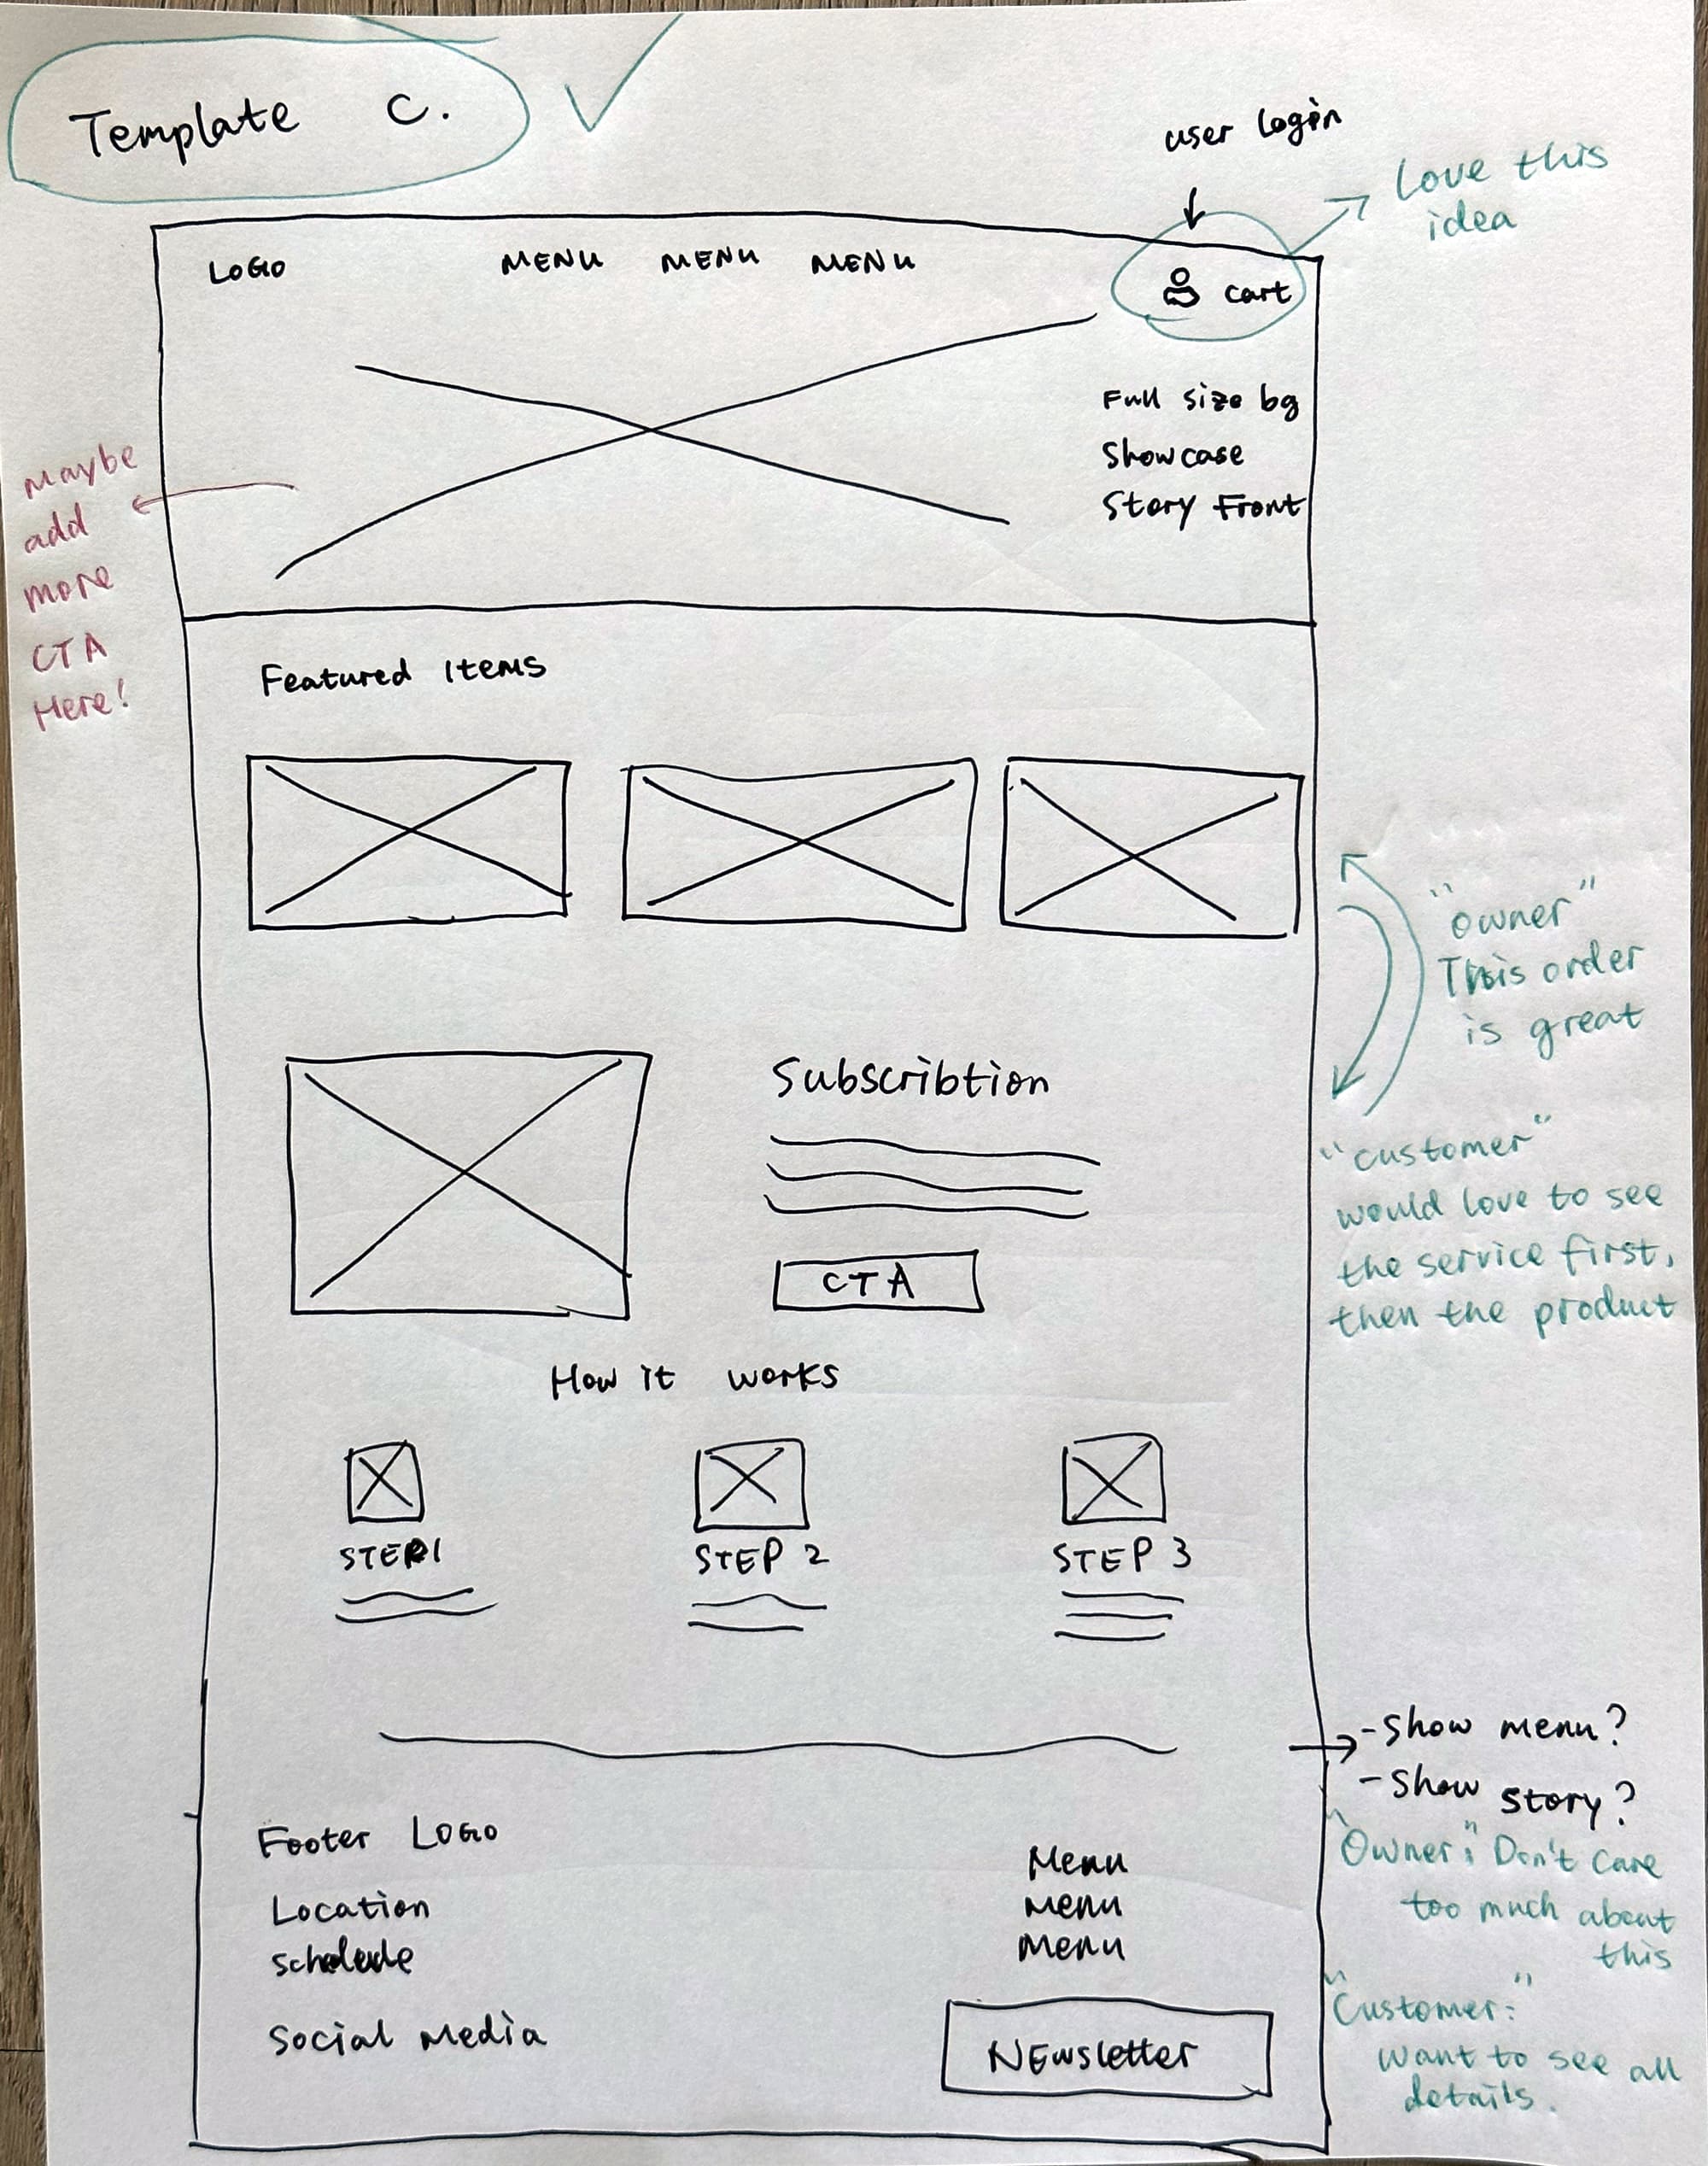 Template C.
user login
Love this
idea
LOGO MENU MENU MENU cart
Full size bg
Showcase
Story Front
Maybe
add
more
CTA
Here!
Featured Items
"owner"
This order
is great
Subscribtion
CTA
"customer"
would love to see
the service first,
then the product
How it works
STEP1 STEP 2 STEP 3
- Show menu?
- Show story?
"Owner": Don't care
too much about
this
"Customer:"
want to see all
details.
Footer LOGO
Location
Social Media
Menu
Menu
Menu
NEwsletter